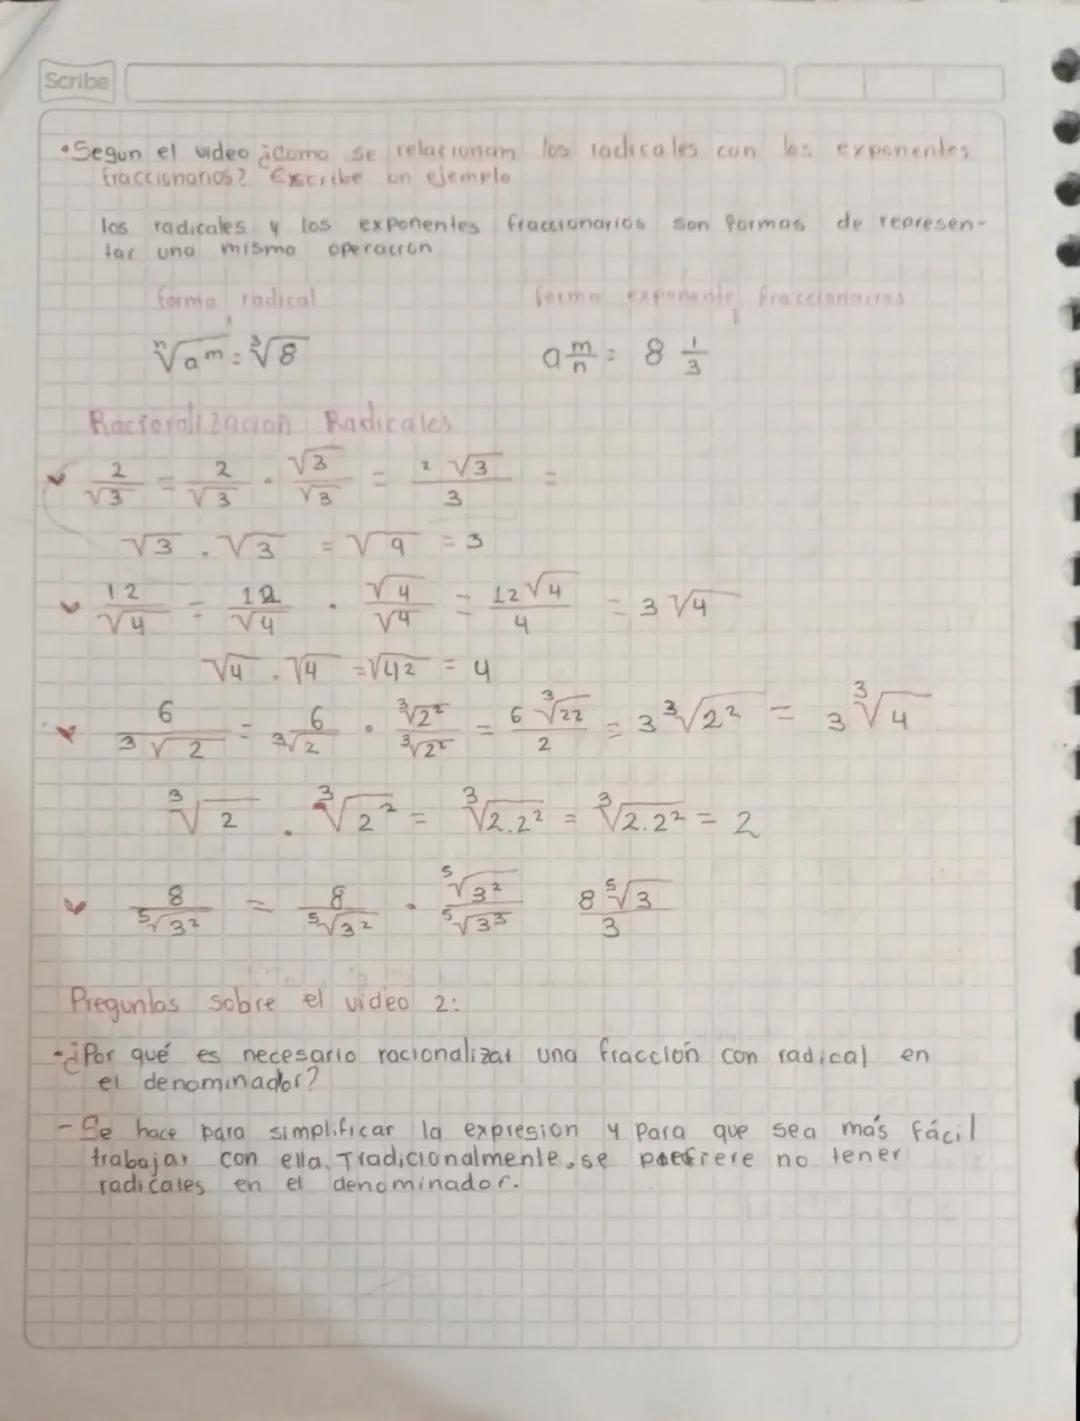 Scribe
•Segun el video ¿Como se relacionan los radicales con los exponentes
fraccionarios? Escribe un ejemplo
los radicales y los exponentes fraccionarios son formas de represen-
tar una misma operacion
forma radical forma exponente fraccionarios
ⁿ√a^m = ³√8 a m/n = 8 1/3
Racionalizacion Radicales
2/√3 = 2/√3 · √3/√3 = 2√3/3 =
√3 . √3 = √9 = 3
12/√4 = 12/√4 · √4/√4 = 12√4/4 = 3√4
√4 . √4 = √4² = 4
6/³√2 = 6/³√2 · ³√2²/³√2² = 6 ³√22/2 = 3 ³√2² = 3 ³√4
³√2 . ³√2² = ³√2.2² = ³√2.2² = 2
8/⁵√3² = 8/⁵√3² · ⁵√3²/⁵√3³ 8 ⁵√3/3
Preguntas sobre el video 2:
-¿Por qué es necesario racionalizar una fracción con radical en
el denominador?
- Se hace para simplificar la expresion y para que sea más fácil
trabajar con ella. Tradicionalmente, se prefiere no tener
radicales en el denominador.